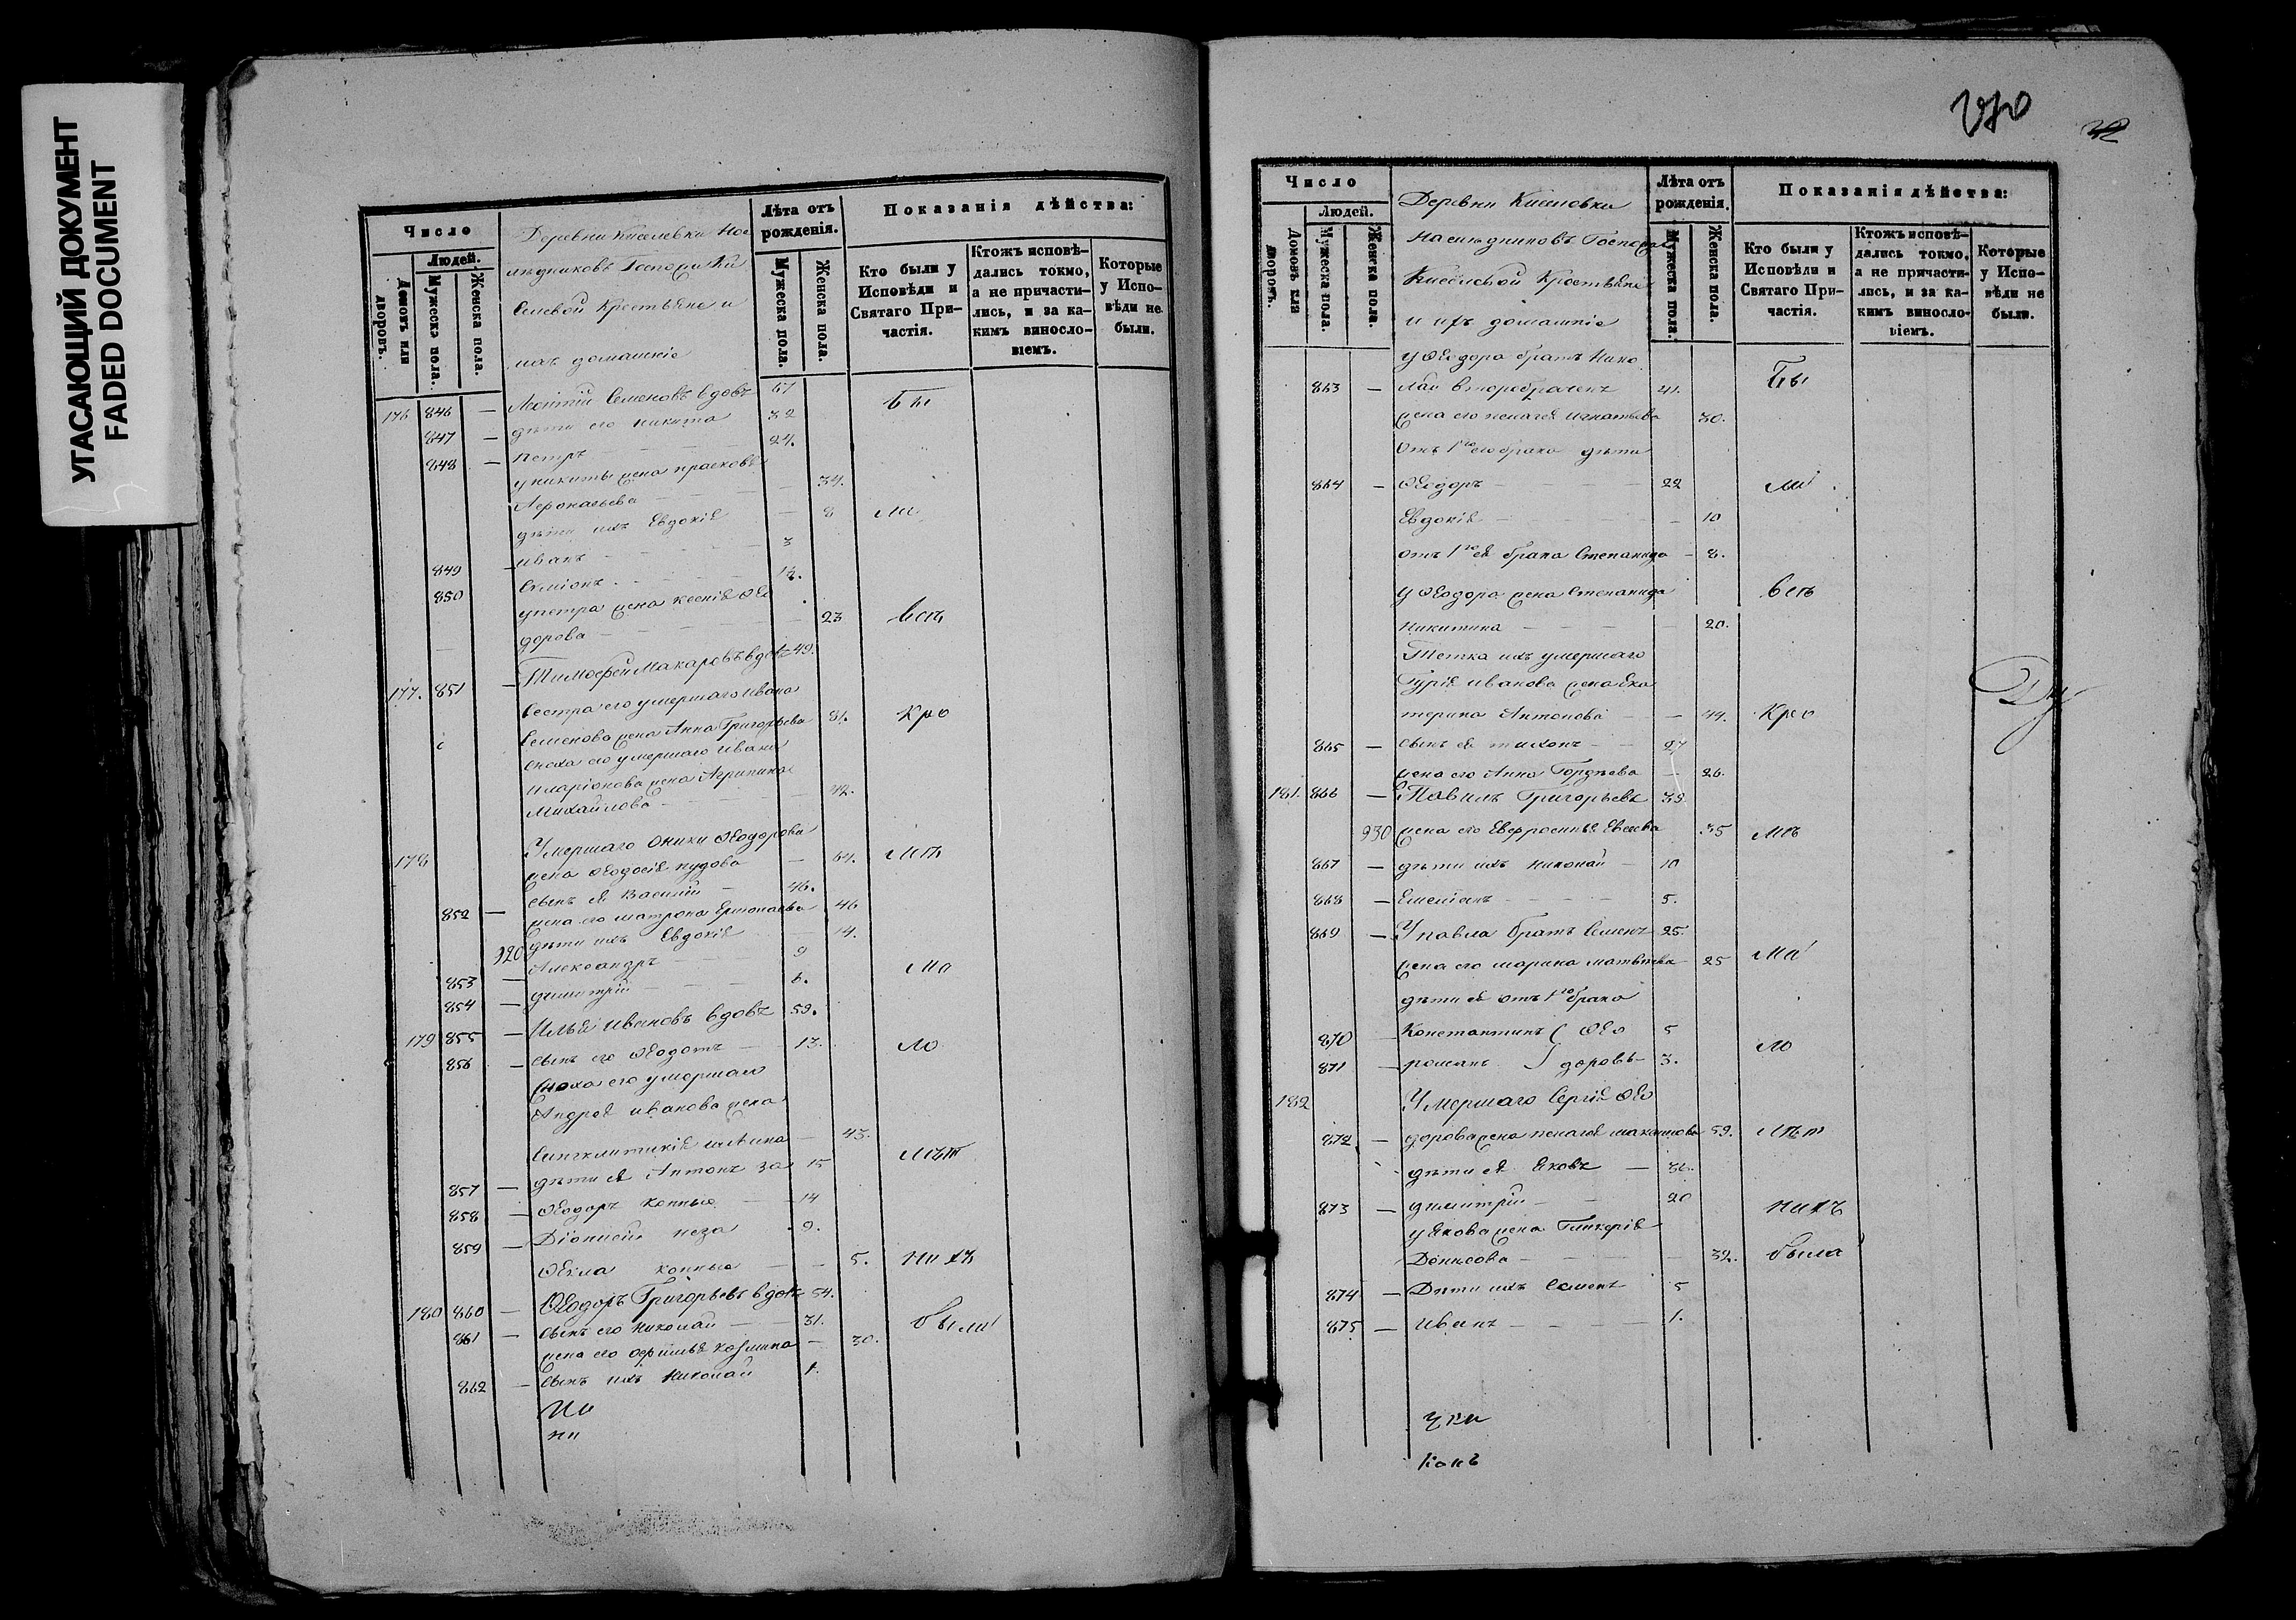 УГАСАЮЩИЙ ДОКУМЕНТ
FADED DOCUMENT
Число
Людей.
Домовъ или дворовъ.
Мужеска пола.
Женска пола.
Деревни Киселевки Нас
лѣдниковъ Госпожи Ки
селевой Крестьяне и
ихъ домашніе
Лѣта отъ рожденія.
Мужеска пола.
Женска пола.
Показанія дѣйства:
Кто были у Исповѣди и Святаго При-частія.
Ктожъ исповѣ-дались токмо, а не причасти-лись, и за ка-кимъ винослo-віемъ.
Которые у Испо-вѣди не были.
176 846 — Леонтій Семеновъ вдовъ 67 Бы
847 — дѣти его Никита 32
848 — Петръ 24.
у Никиты жена Прасковья
34.
дѣти ихъ Евдокія — 8 ли
849 Иванъ 3
850 Симіонъ 1
у Петра жена Ксенія Ѳео
дорова 23 всѣ
177. 851 — Тимоѳей Макаровъ вдовъ 49.
сестра его умершаго Ивана
Семенова жена Анна Григорьева 81. Кро
сноха его умершаго Ивана
Иларіонова жена Агрипина
Михайлова 42.
178 Умершаго Оники Ѳеодорова
жена Ѳеодосія — 64. мѣ
852 — сынъ ея Василій — 46.
жена его Матрона 46
920 дѣти ихъ Евдокія 14.
853 — Александръ 9 ма
854 — Димитрій 6.
179 855 — Илья Ивановъ вдовъ 59.
856 — сынъ его Ѳеодотъ 13. ло
сноха его умершаго
Андрея Иванова жена
43.
857 — дѣти ея Антонъ за 15 лѣт
858 — Ѳеодоръ конные 14
859 — Діонисій неза 9.
Ѳекла конные — 5. нихъ
180 860 — Ѳеодоръ Григорьевъ вдовъ 54.
861 — сынъ его Николай 31. были
жена его Козмина — 30.
862 — сынъ ихъ Николай 1.
Число
Людей.
Домовъ или дворовъ.
Мужеска пола.
Женска пола.
Деревни Киселовки
наслѣдниковъ Госпожи
Киселевой Крестьяне
и ихъ домашніе
Лѣта отъ рожденія.
Мужеска пола.
Женска пола.
Показанія дѣйства:
Кто были у Исповѣди и Святаго При-частія.
Ктожъ исповѣ-дались токмо, а не причасти-лись, и за ка-кимъ винослo-віемъ.
Которые у Испо-вѣди не были.
у Ѳеодора братъ Нико
863 — лай второбраченъ 41. Бы
жена его Пелагея Игнатьева 30.
отъ 1го его брака дѣти
864 — Ѳеодоръ 22 ли
Евдокія 10
отъ 1го ея брака Степанида — 8.
у Ѳеодора жена Степанида всѣ
Никитина 20.
Тетка ихъ умершаго
Гурія Иванова жена Ека
терина Антонова — 44. Кро
865 — сынъ ея Тихонъ 27
жена его Анна Гордѣева 26.
181. 866 — Павелъ Григорьевъ 39
930 жена его Евфросинья 35 мѣ
867 — дѣти ихъ Николай 10
868 — Емеліанъ 5.
869 — У Павла братъ Семенъ 25.
жена его Марина Матвѣева 25 ма
дѣти ея отъ 1го брака
870 Константинъ Ѳео 5
871 — Романъ доровы 3. ло
182 Умершаго Сергія Ѳео
872 — дорова жена Пелагея 59. лѣт
дѣти ея Яковъ — 36.
873 — Димитрій 20 нихъ
у Якова жена Гликерія
Денисова 32. была
874 — Дѣти ихъ Семенъ 5
875 — Иванъ 1.